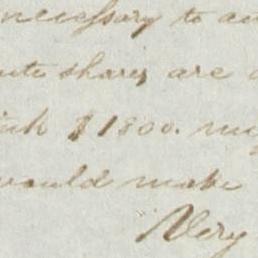 necessary to
shares are
$1800.
would make
Very